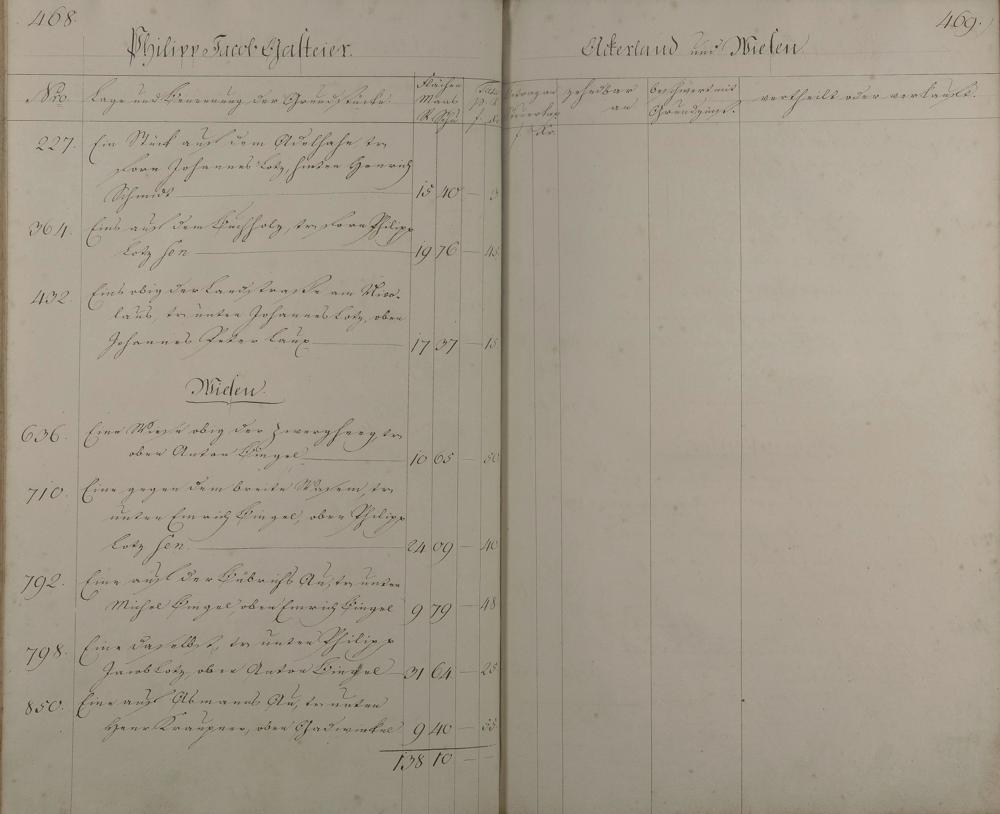 468.
469.
Philipp Jacob Gasteier.
Ackerland und Wiesen
Nro. Lage und Benennung der Grundstücke
Flächen
Maas
R. Schu
f. Kr.
zehndbar
an
beschwert mit
Grundzins.
vertheilt oder verkauft.
227. Ein Stück auf dem Adolhahe,
vorn Johannes Lotz, hinten Henrich
Schmidt 15 40 — 3
364. Eins auf dem Buchholz, vorn Philipp
Lotz sen 19 76 — 45
432. Eins obig der Landstrasse am Nico-
laus, unten Johannes Lotz, oben
Johannes Peter Laux 17 37 — 15
Wiesen.
636. Eine Wiese obig der Zwerghecg
oben Anton Bingel 10 65 — 50
710. Eine gegen dem breite Wasem,
unten Emrich Bingel, oben Philipp
Lotz sen. 24 09 — 40
792. Eine auf der Bubrichs Au, unten
Michel Bingel oben Emrich Bingel 9 79 — 48
798. Eine daselbst, unten Philipp
Jacob Lotz, oben Anton Bingel 31 64 — 25
850. Eine auf Asmanns Au, unten
Henr Kraupner, oben 9 40 — 55
138 10 — —